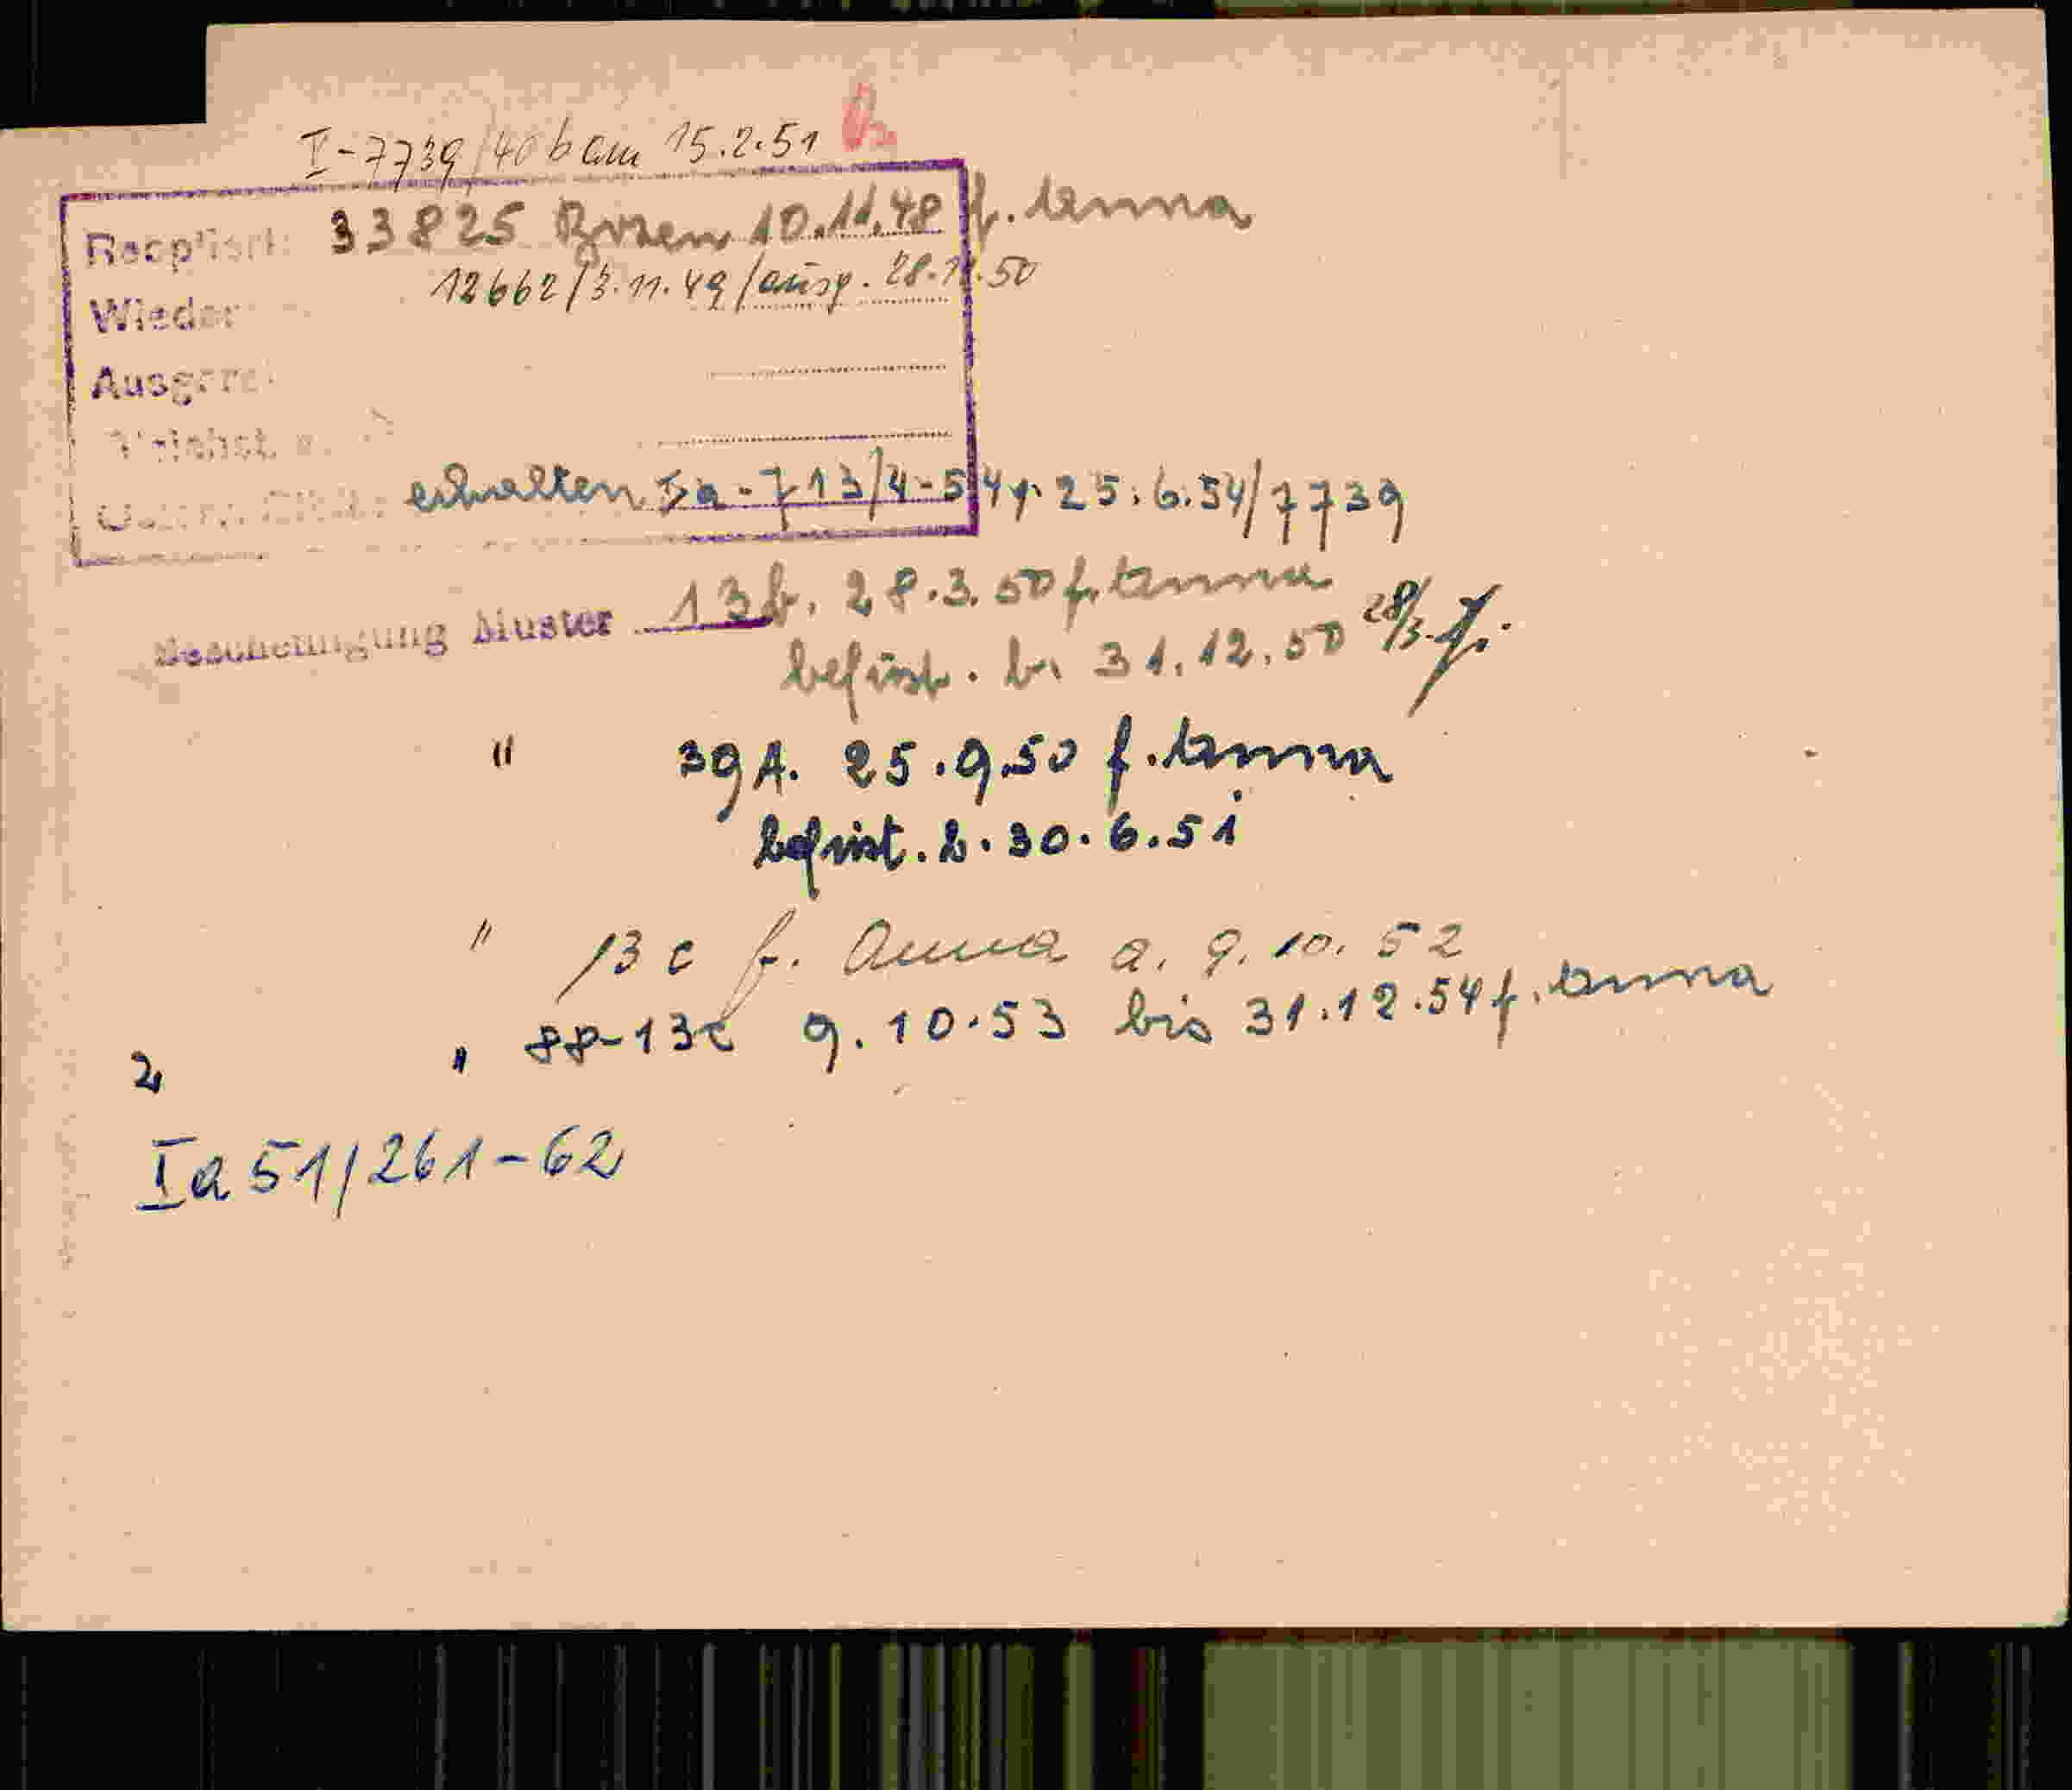 I-7739/40 b am 15.2.51
33825 Bozen 10.11.48 f. Anna
12662/3.11.49/ausg. 28.11.50
Wieder
erhalten Ia-713/4-54 v. 25.6.54/7739
Bescheinigung Muster 13b. 28.3.50 f. Anna
befrist. b. 31.12.50 28/3.
" 39A. 25.9.50 f. Anna
befrist. b. 30.6.51
" 13c f. Anna a. 9.10.52
2 " 88-13c 9.10.53 bis 31.12.54 f. Anna
Ia 51/261-62